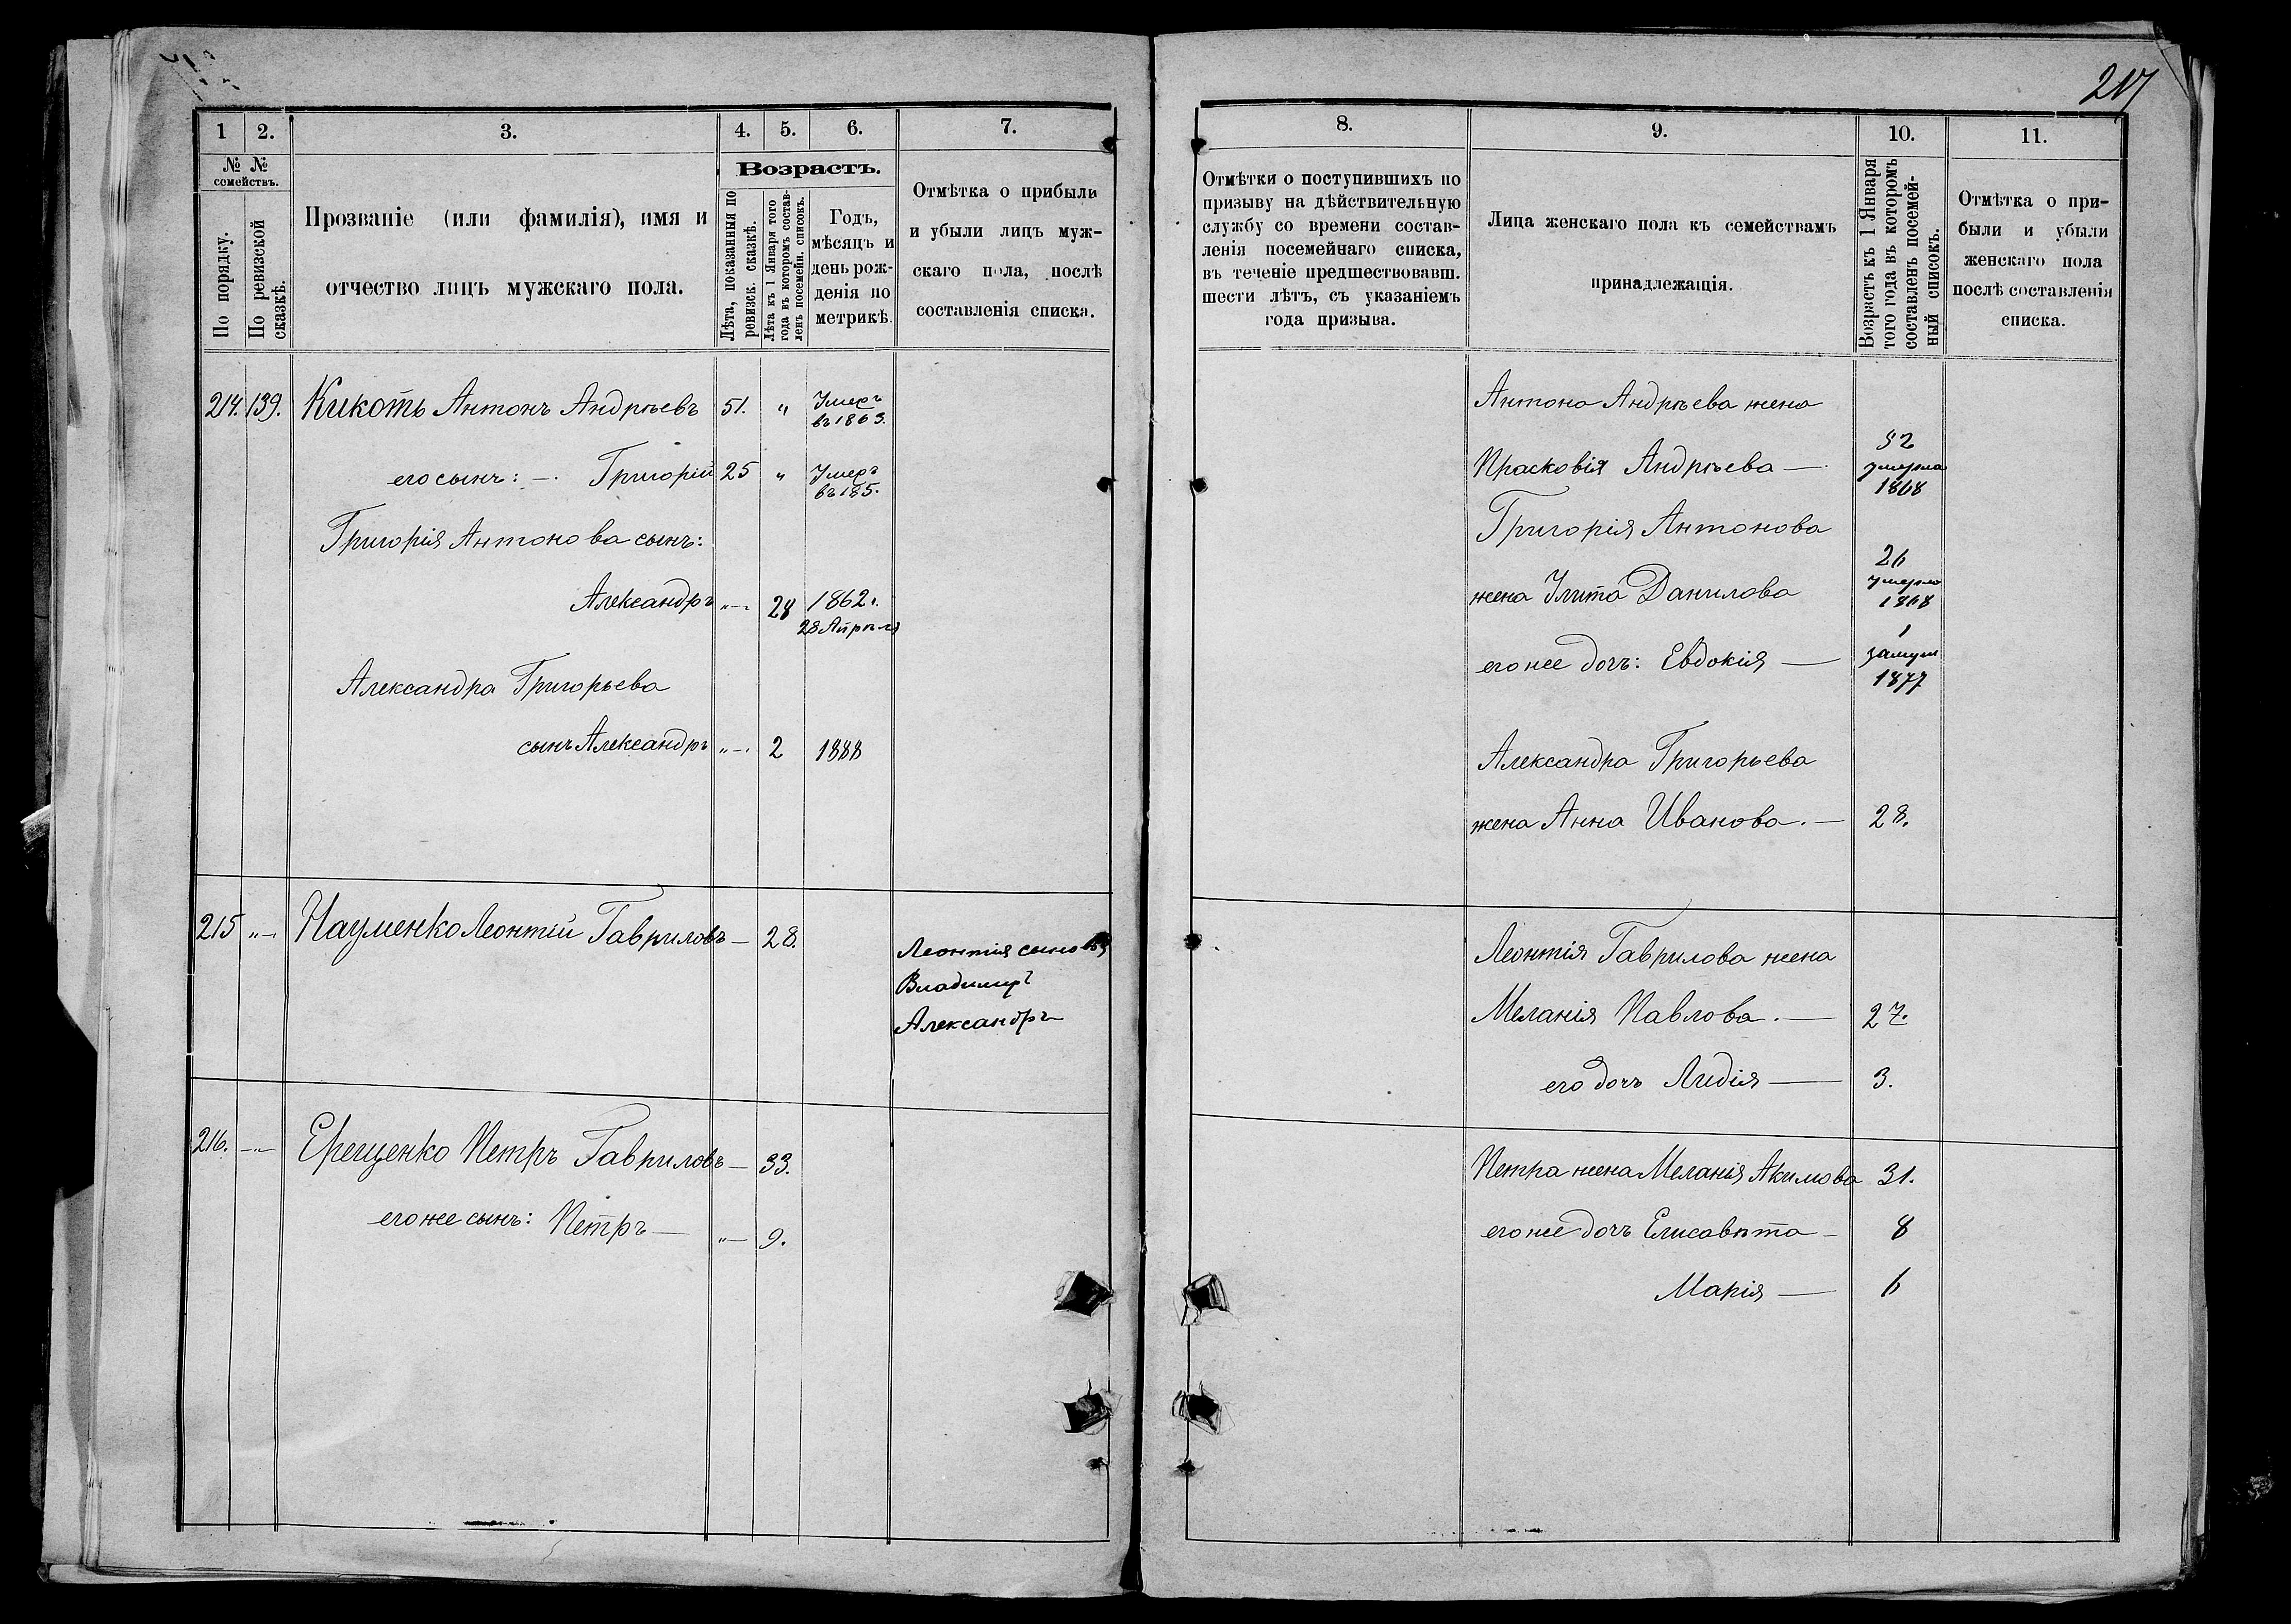 217
1
2.
3.
4.
5.
6.
7.
№ №
семействъ.
По порядку.
По ревизской
сказкѣ.
Прозваніе (или фамилія), имя и
отчество лицъ мужскаго пола.
Возрастъ.
Лѣта, показанныя по
ревизск. сказкѣ.
Лѣта къ 1 Января того
года въ которомъ состав-
ленъ посемейн. списокъ.
Годъ,
мѣсяцъ и
день рож-
денія по
метрикѣ.
Отмѣтка о прибыли
и убыли лицъ муж-
скаго пола, послѣ
составленія списка.
214. 139. Кикоть Антонъ Андреевъ 51. " Умеръ
въ 1863.
его сынъ: —. Григорій 25 " Умеръ
въ 185.
Григорія Антонова сынъ:
Александръ "—. 28 1862.
28 Апрѣля
Александра Григорьева
сынъ Александръ "—. 2 1888
215 "—. Науменко Леонтій Гавриловъ — 28.
Леонтія сыновья
Владимиръ
Александръ
216. —"— Ерещенко Петръ Гавриловъ — 33.
его же сынъ: Петръ — "— 9.
8.
9.
10.
11.
Отмѣтки о поступившихъ по
призыву на дѣйствительную
службу со времени состав-
ленія посемейнаго списка,
въ теченіе предшествовавш.
шести лѣтъ, съ указаніемъ
года призыва.
Лица женскаго пола къ семействамъ
принадлежащія.
Возрастъ къ 1 Января
того года въ которомъ
составленъ посемей-
ный списокъ.
Отмѣтка о при-
были и убыли
женскаго пола
послѣ составленія
списка.
Антона Андреева жена
Прасковія Андреева — 52
умерла
1868
Григорія Антонова
жена Улита Данилова 26
умерла
1868
его же дочь: Евдокія — 1
замуж
1877
Александра Григорьева
жена Анна Иванова. — 28.
Леонтія Гаврилова жена
Меланія Павлова. — 27.
его дочь Лидія — 3.
Петра жена Меланія Акимова 31.
его же дочь Елисавѣта — 8
Марія — 6